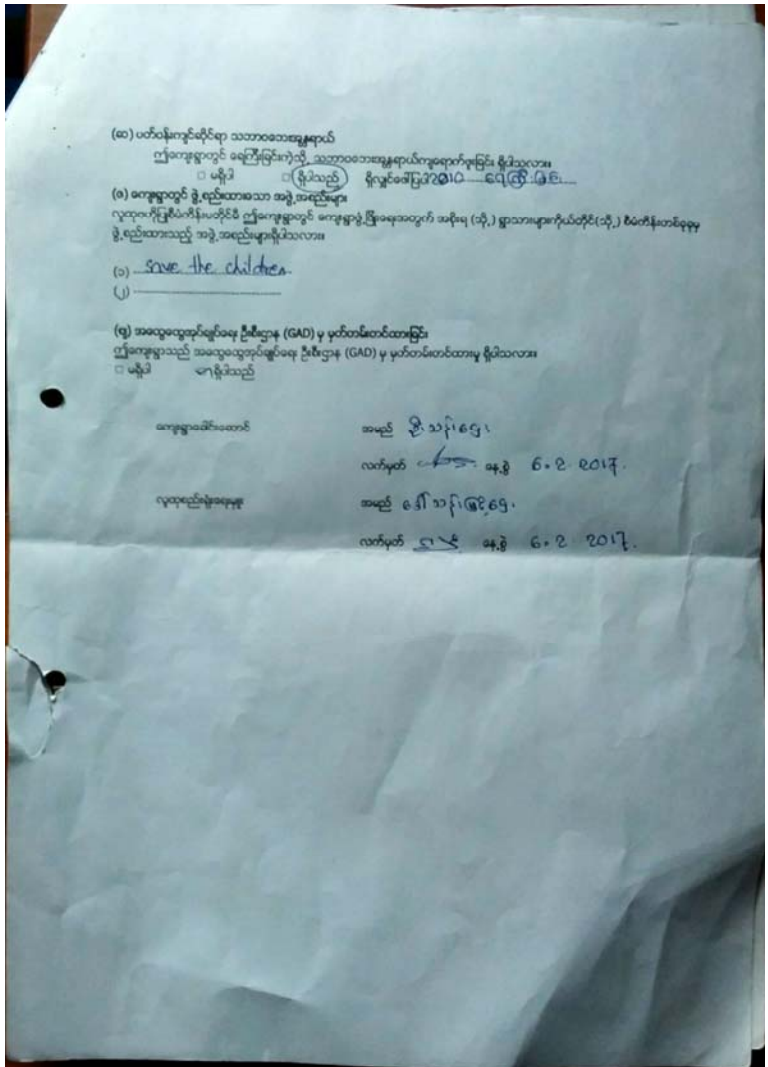 (ဆ) ပတ်ဝန်းကျင်ဆိုင်ရာ သဘာဝဘေးအန္တရာယ်
ဤကျေးရွာတွင် ရေကြီးခြင်းကဲ့သို့ သဘာဝဘေးအန္တရာယ်ကျရောက်ဖူးခြင်း ရှိပါသလား။
□ မရှိပါ □ ရှိပါသည် ရှိလျှင်ဖော်ပြပါ 2010 ရေကြီးခြင်း
(ဇ) ကျေးရွာတွင် ဖွဲ့စည်းထားသော အဖွဲ့အစည်းများ
လူထုဗဟိုပြုစီမံကိန်းမတိုင်မီ ဤကျေးရွာတွင် ကျေးရွာဖွံ့ဖြိုးရေးအတွက် အစိုးရ (သို့) ရွာသားများကိုယ်တိုင်(သို့) စီမံကိန်းတစ်ခုခုမှ
ဖွဲ့စည်းထားသည့် အဖွဲ့အစည်းများရှိပါသလား။
(၁) save the children
(၂)
(ဈ) အထွေထွေအုပ်ချုပ်ရေး ဦးစီးဌာန (GAD) မှ မှတ်တမ်းတင်ထားခြင်း
ဤကျေးရွာသည် အထွေထွေအုပ်ချုပ်ရေး ဦးစီးဌာန (GAD) မှ မှတ်တမ်းတင်ထားမှု ရှိပါသလား။
□ မရှိပါ ရှိပါသည်
ကျေးရွာခေါင်းဆောင် အမည် ဦးသန်းဌေး
လက်မှတ် နေ့စွဲ 6.2.2017.
လူထုစည်းရုံးရေးမှူး အမည် ဒေါ်သန်းမြင့်ဌေး
လက်မှတ် နေ့စွဲ 6.2.2017.